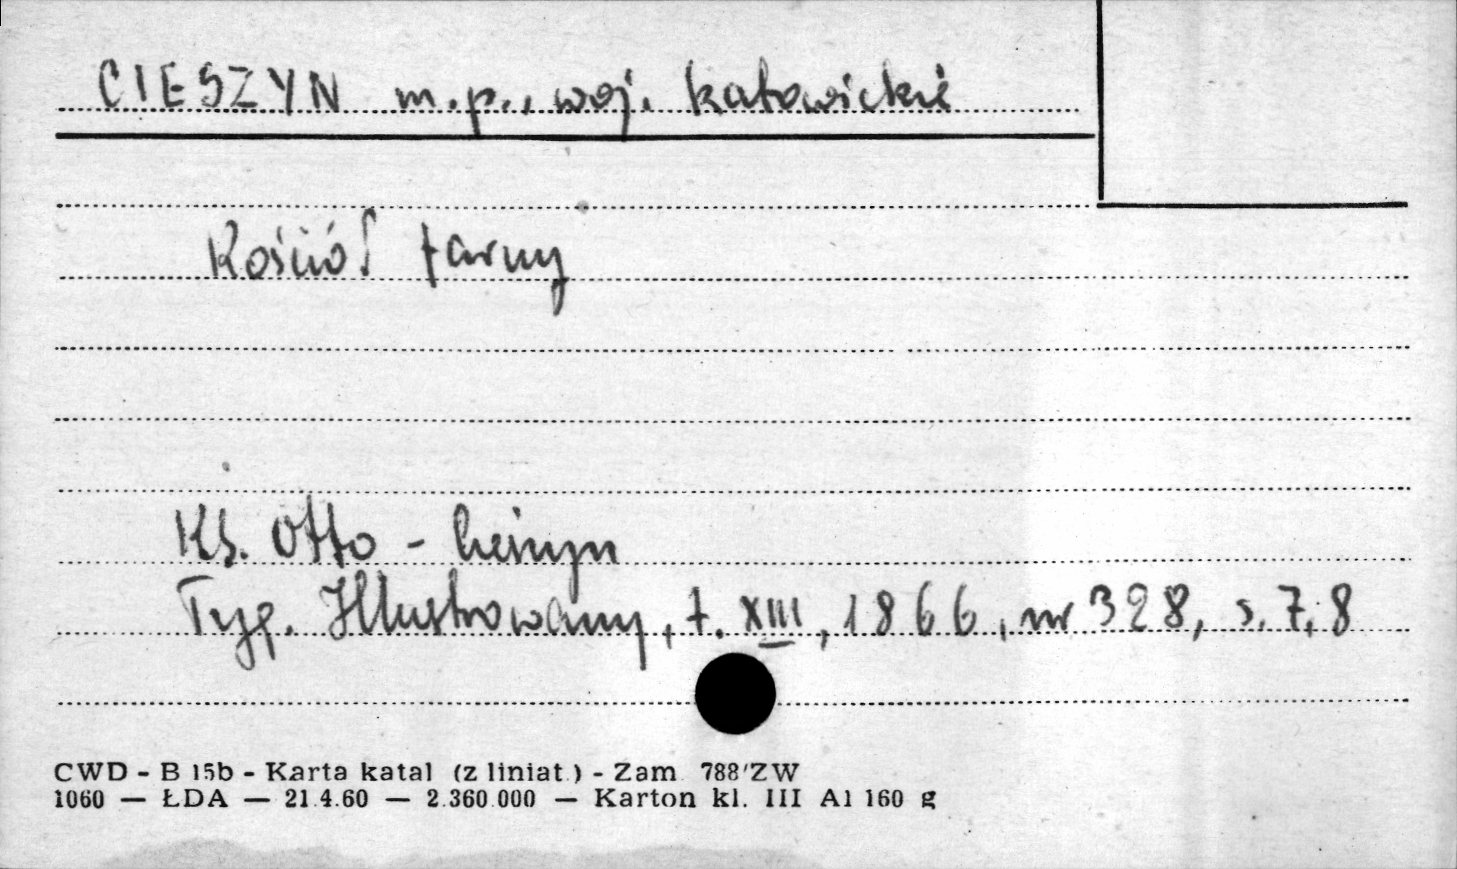 CIESZYN m.p., woj. katowickie
Kościół farny
Ks. Otto - Cieszyn
Tyg. Illustrowany, t. XIII, 1866, nr 328, s. 7,8
CWD - B 15b - Karta katal (z liniat.) - Zam. 788/ZW
1060 — ŁDA — 21.4.60 — 2.360.000 — Karton kl. III A1 160 g